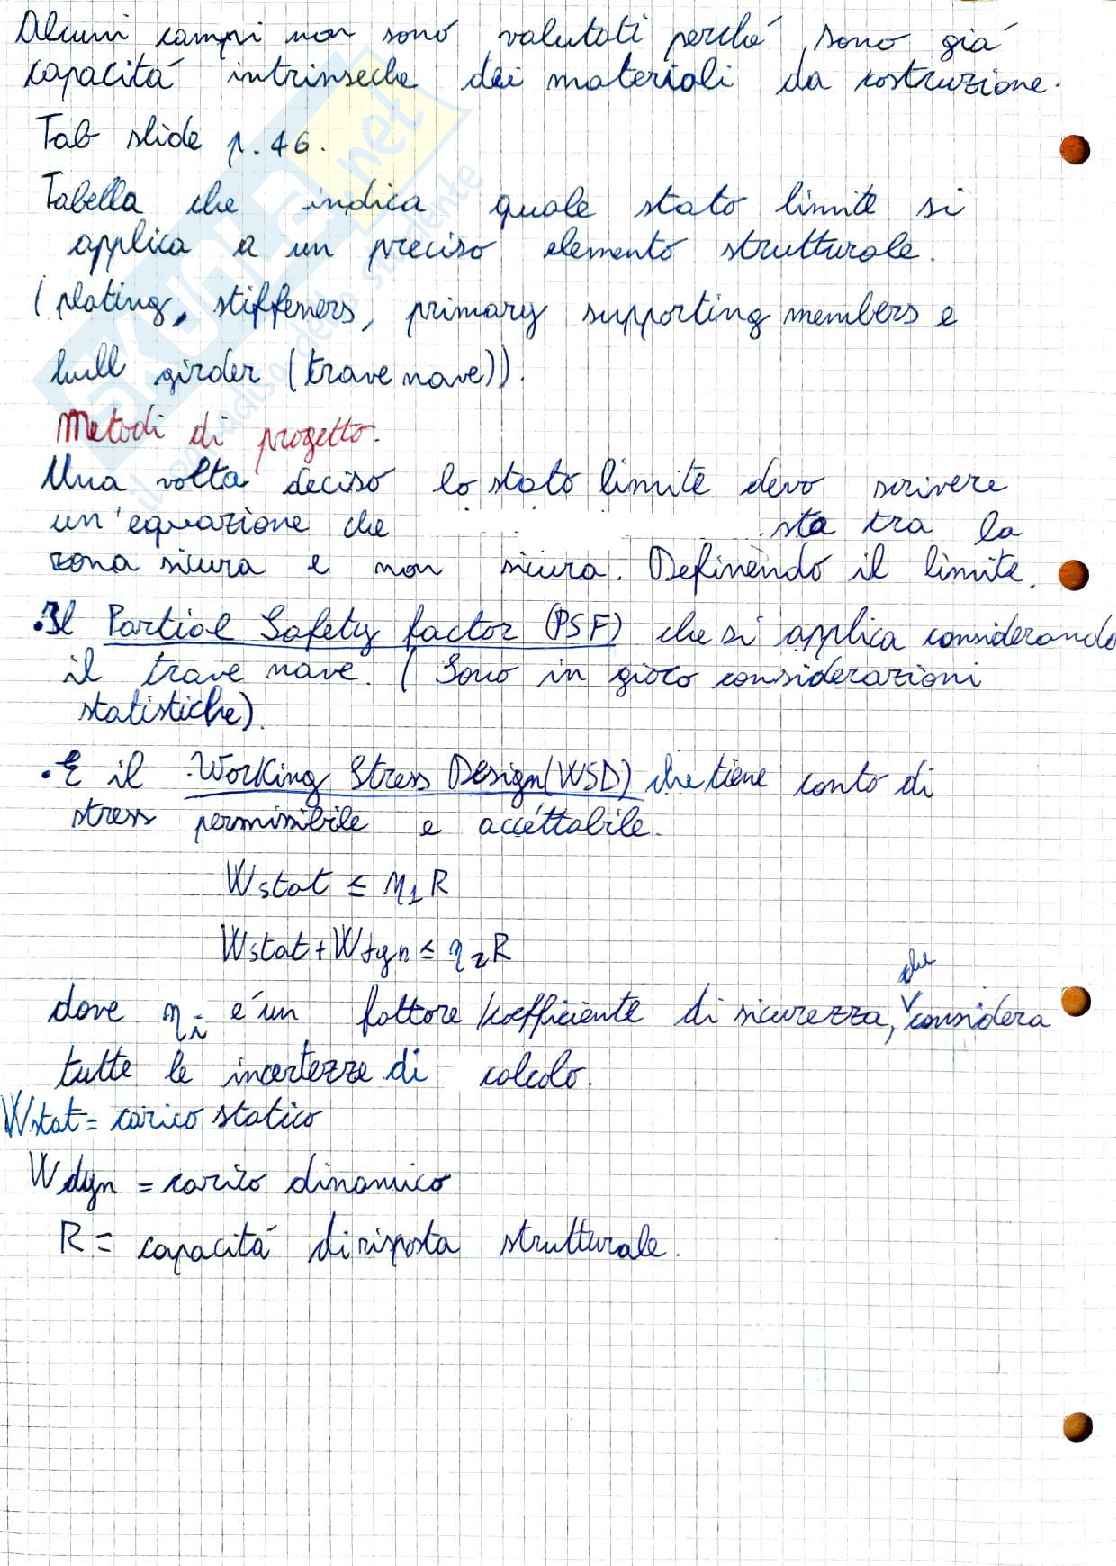 Alcuni campi non sono valutati perché sono giá
capacitá intrinseche dei materiali da costruzione.
Tab slide p. 46.
Tabella che indica quale stato limite si
applica a un preciso elemento strutturale.
(plating, stiffeners, primary supporting members e
hull girder (trave nave)).
Metodi di progetto.
Una volta deciso lo stato limite devo scrivere
un'equazione che sta tra la
zona sicura e non sicura. Definendo il limite.
.Il Partial Safety factor (PSF) che si applica considerando
il trave nave. (Sono in gioco considerazioni
statistiche).
.E il Working Stress Design (WSD) che tiene conto di
stress permissibile e accettabile.
Wstat ≤ η1 R
Wstat + Wdyn ≤ η2 R
dove ηi é un fattore/coefficiente di sicurezza, che considera
tutte le incertezze di calcolo.
Wstat = carico statico
Wdyn = carico dinamico
R = capacitá di risposta strutturale.
skuola.net
il paradiso dello studente